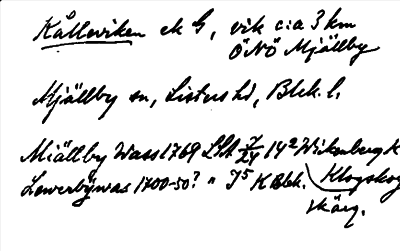 Kålleviken ek G, vik c:a 3 km
ÖNÖ Mjällby
Mjällby sn, Listers hd, Blek. l.
Miällby Wass 1769 LSA 14² Wickenberg K
Lewerbÿwas 1700-50? " J⁵ K Blek. Klogskog
skärg.